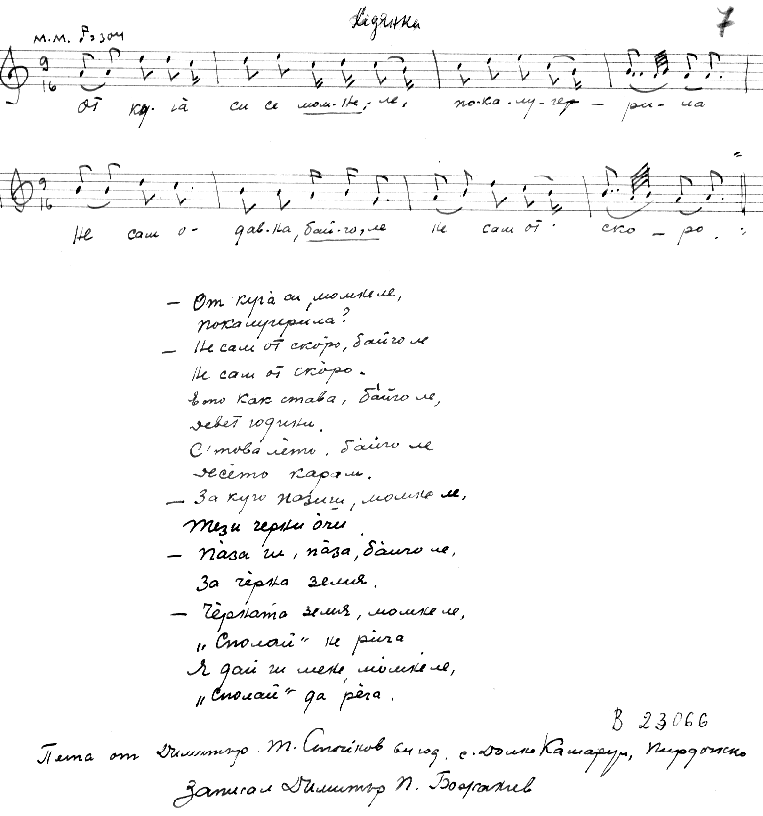 Седянка
7
м.м. ♪=304
9
16
От ку-га си се мом-не,-ле, по-ка-лу-гер-ри-ла
9
16
Не сам о-дав-на, бай-го,ле не сам от ско-ро.
– От куга си, момнеле,
покалугерила?
– Не сам от скоро, байго ле
Не сам от скоро.
Ето как става, байго ле,
девет години.
С'това лето, байго ле
десето карам.
– За куго пазиш, момне ле,
Тези черни очи
– Паза ги, паза, байго ле,
За черна земля.
– Черната земля, момне ле,
„Сполай" не рича
Я дай ги мене, момне ле,
„Сполай" да река.
В 23066
Пета от Димитър Т. Стойков 64 год. с. Долно Камарци, Пирдопско
Записал Димитър П.